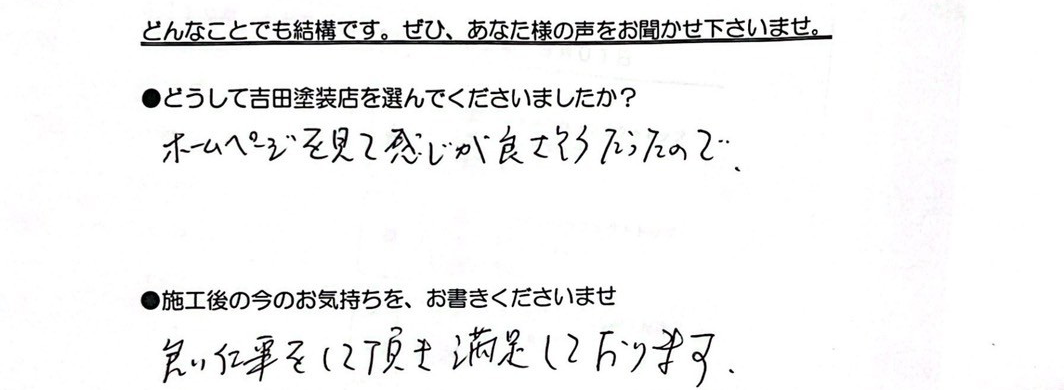 どんなことでも結構です。ぜひ、あなた様の声をお聞かせ下さいませ。
●どうして吉田塗装店を選んでくださいましたか？
ホームページを見て感じが良さそうだったので.
●施工後の今のお気持ちを、お書きくださいませ
良い仕事をして頂き満足しております.